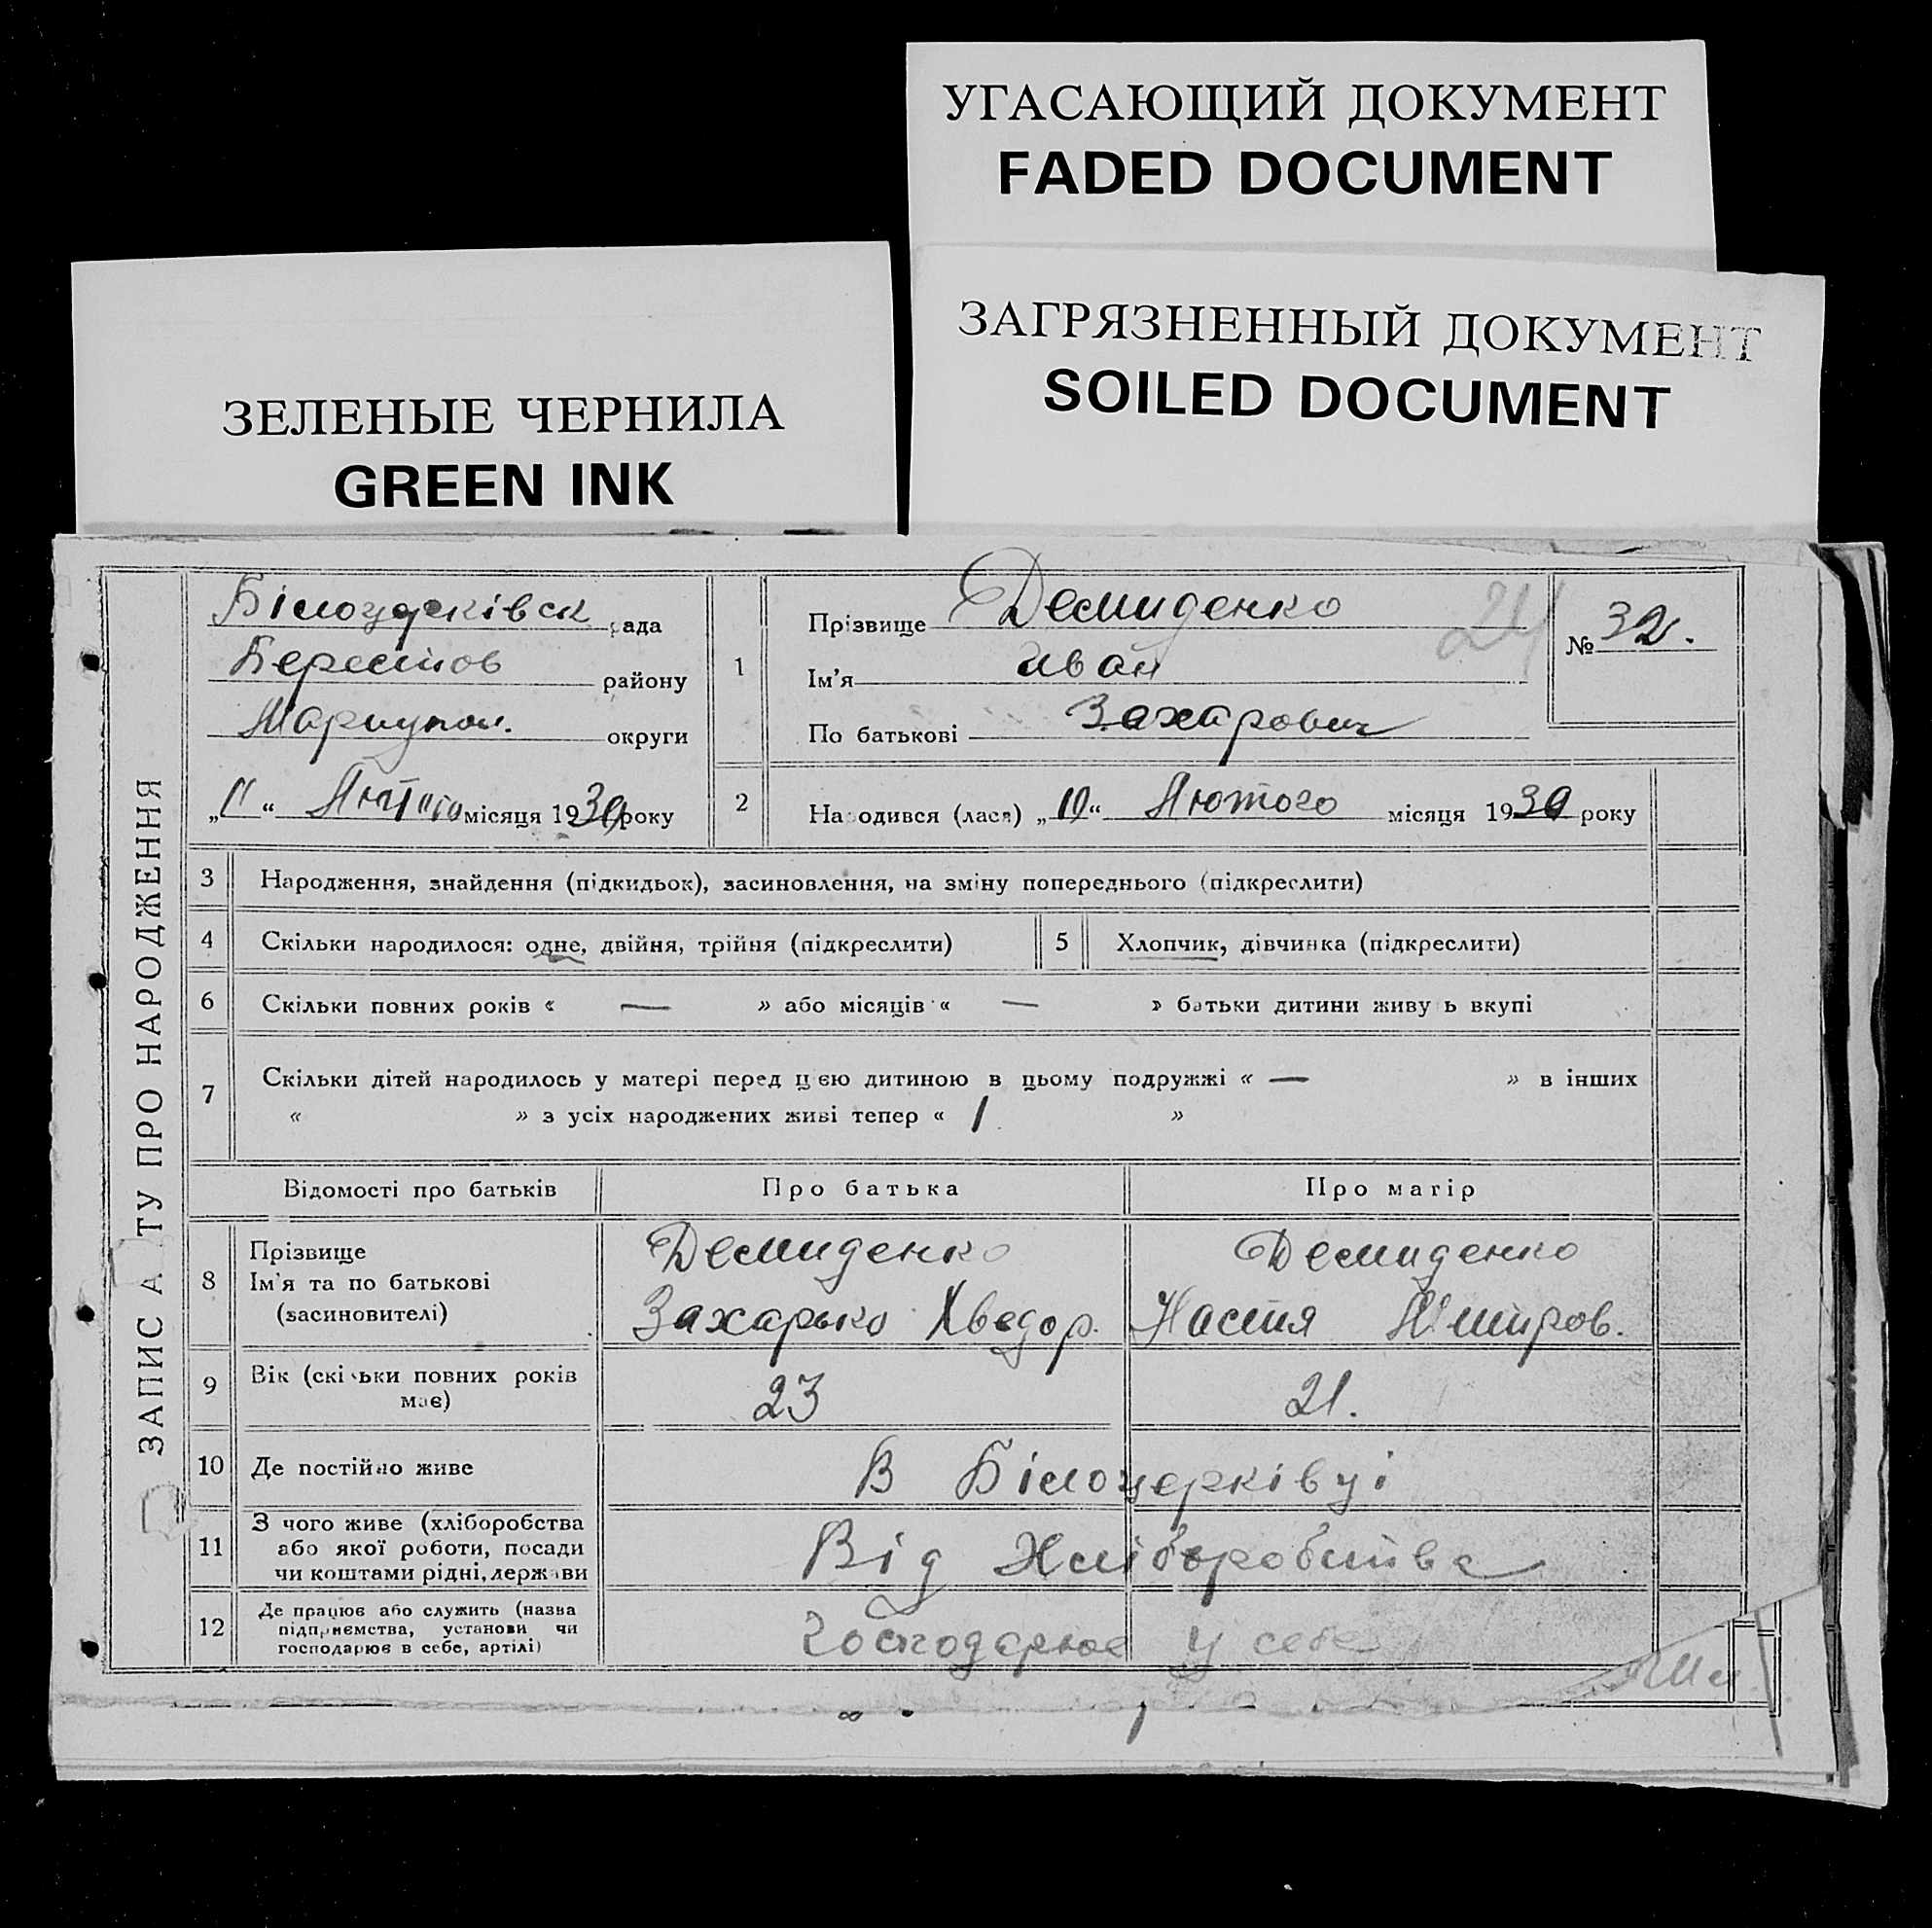 УГАСАЮЩИЙ ДОКУМЕНТ
FADED DOCUMENT
ЗАГРЯЗНЕННЫЙ ДОКУМЕНТ
SOILED DOCUMENT
ЗЕЛЕНЫЕ ЧЕРНИЛА
GREEN INK
ЗАПИС А ТУ ПРО НАРОДЖЕННЯ
Білоцерківск рада
Берестов району
Мариупол. округи
„11“ Лютого місяця 1930 року
1 Прізвище Демиденко
Ім'я Иван
По батькові Захарович
24
№ 32.
2 Народився (лася) „10“ Лютого місяця 1930 року
3 Народження, знайдення (підкидьок), засиновлення, на зміну попереднього (підкреслити)
4 Скільки народилося: одне, двійня, трійня (підкреслити) 5 Хлопчик, дівчинка (підкреслити)
6 Скільки повних років « — » або місяців « — » батьки дитини живу ь вкупі
7 Скільки дітей народилось у матері перед цією дитиною в цьому подружжі « — » в інших
« » з усіх народжених живі тепер « 1 »
Відомості про батьків Про батька Про матір
8 Прізвище Демиденко Демиденко
Ім'я та по батькові
(засиновителі) Захарько Хведор. Настя
9 Вік (скільки повних років 23 21.
має)
10 Де постійно живе В Білоцерківці
11 З чого живе (хліборобства
або якої роботи, посади Від Хліборобства
чи коштами рідні, держави
12 Де працює або служить (назва
підприємства, установи чи Господарює у себе
господарює в себе, артілі)